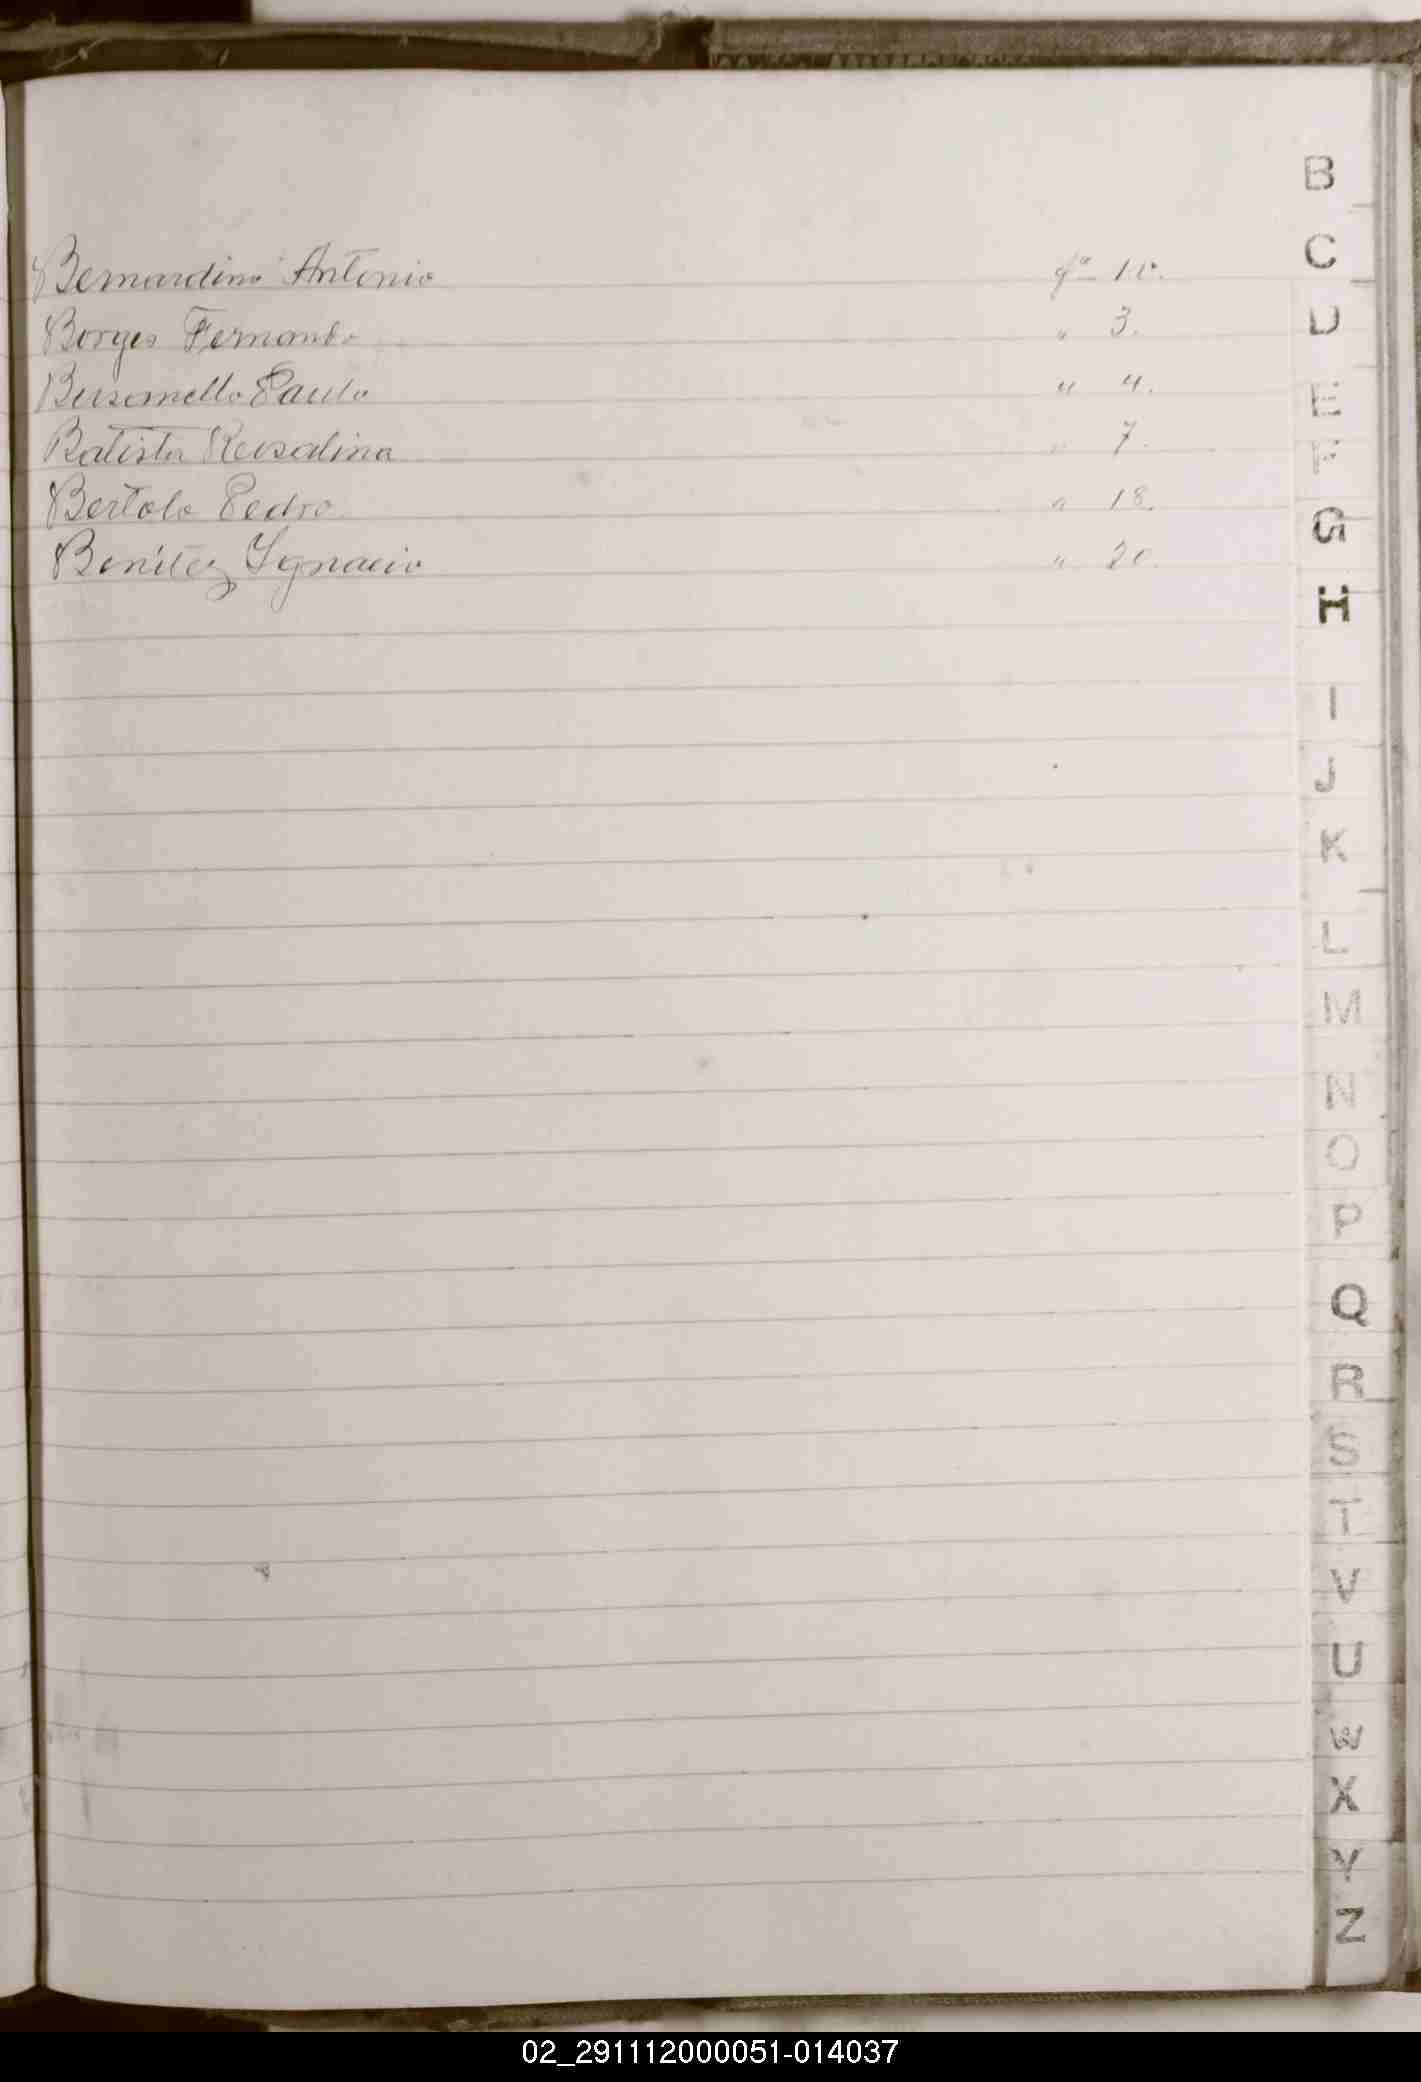 B
C
Bernardino Antonio fº 1v.
D
Borges Fernando " 3.
E
Busomello Paulo " 4.
F
Batista Rosalina " 7.
Bertolo Pedro " 18.
G
Benítez Ignacio " 20.
H
I
J
K
L
M
N
O
P
Q
R
S
T
V
U
W
X
Y
Z
02_291112000051-014037